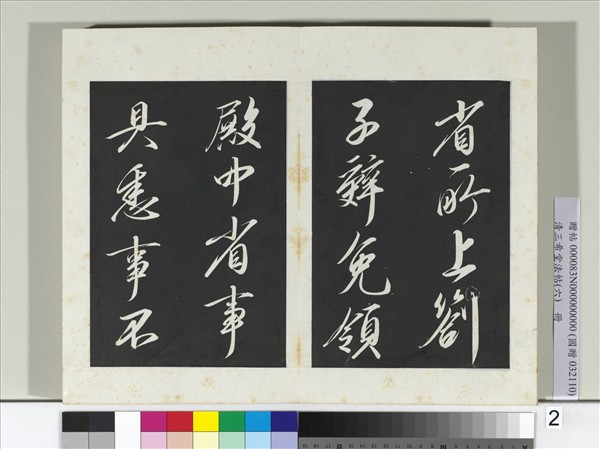 省所上劄
子辭免領
殿中省事
具悉事不
贈帖 000083N000000000 (國贈 032110)
清三希堂法帖(六) 冊
2